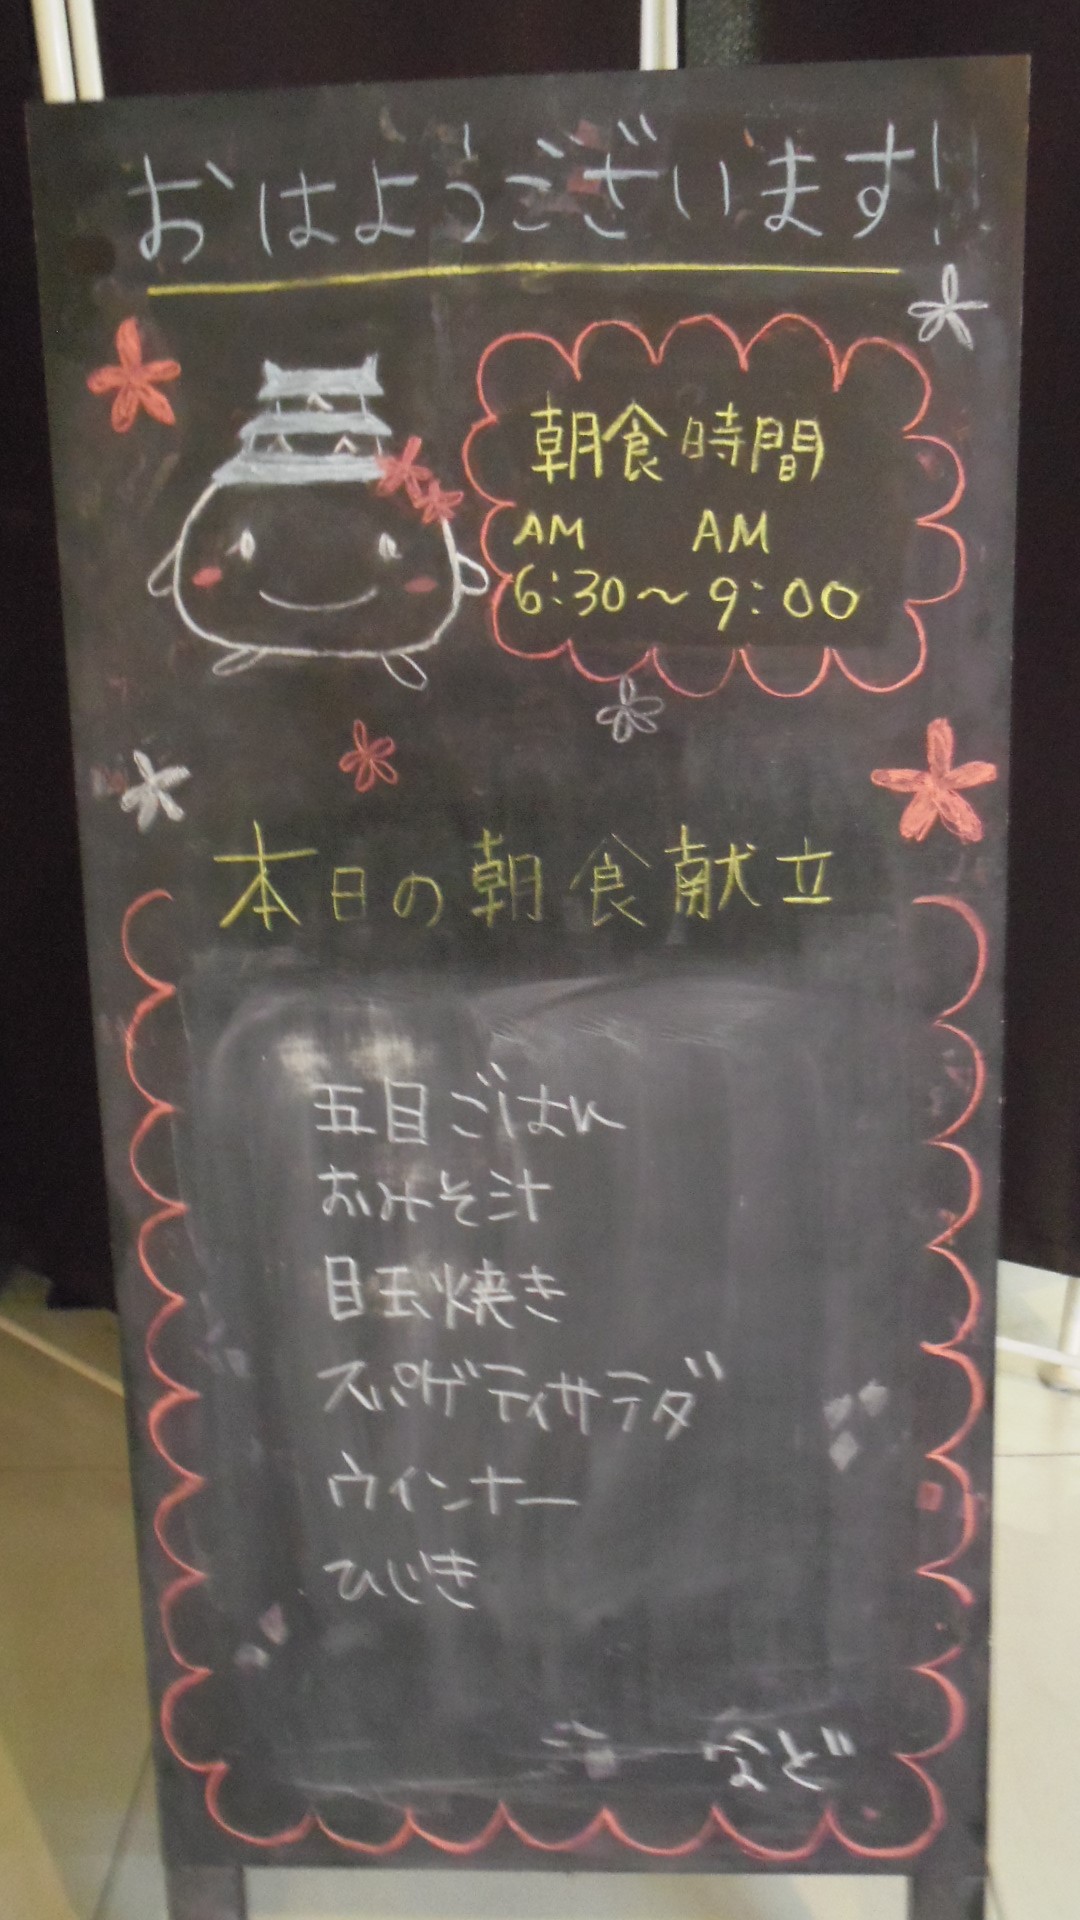 おはようございます!
朝食時間
AM AM
6:30〜9:00
本日の朝食献立
五目ごはん
おみそ汁
目玉焼き
スパゲティサラダ
ウィンナー
ひじき
など